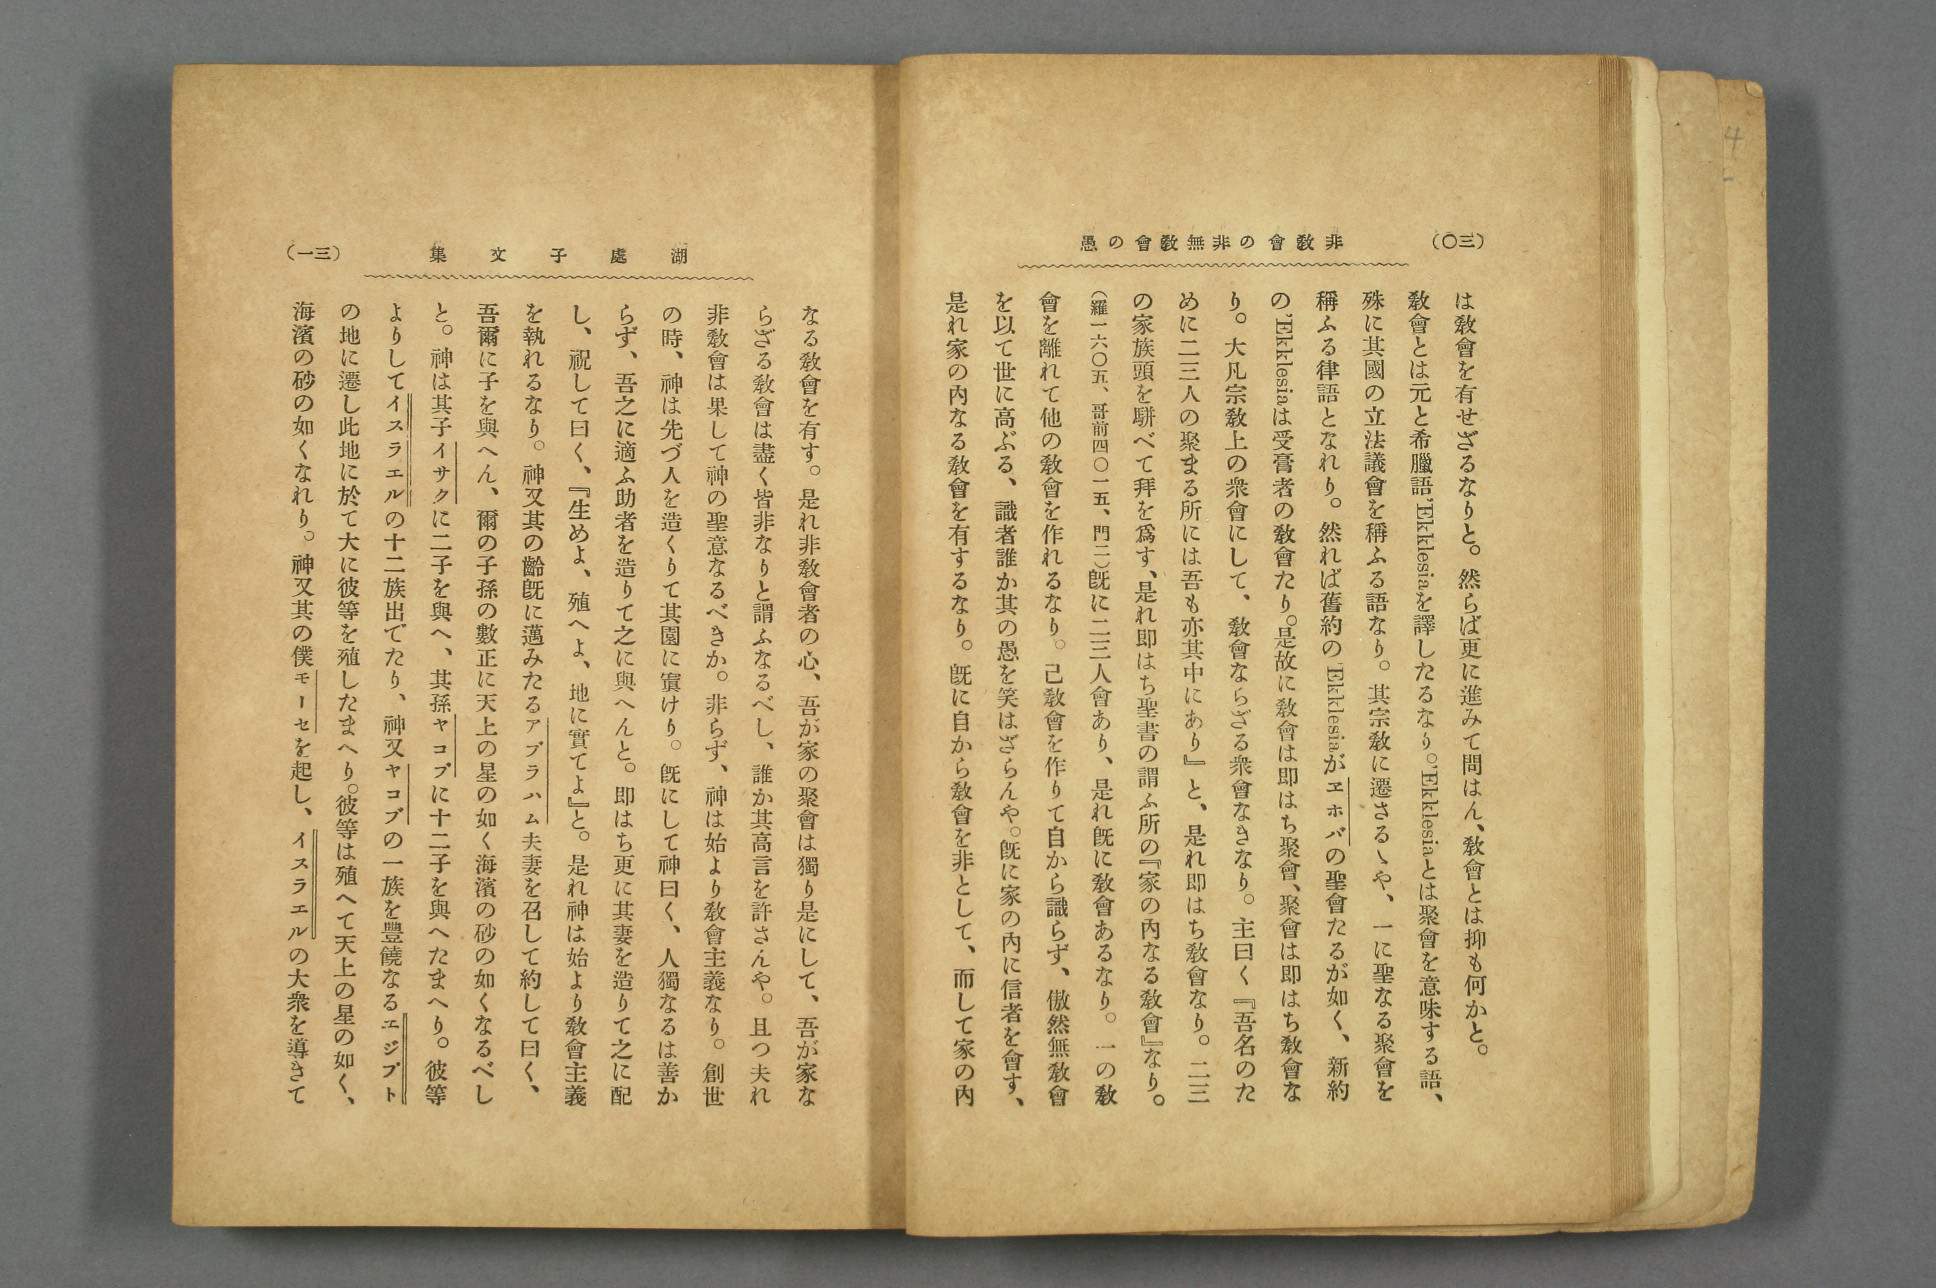 (三〇)
非敎會の非無敎會の愚
は敎會を有せざるなりと。然らば更に進みて問はん、敎會とは抑も何かと。
敎會とは元と希臘語'Ekklesiaを譯したるなり。'Ekklesiaとは聚會を意味する語、
殊に其國の立法議會を稱ふる語なり。其宗敎に遷さるゝや、一に聖なる聚會を
稱ふる律語となれり。然れば舊約の'Ekklesiaがヱホバの聖會たるが如く、新約
の'Ekklesiaは受膏者の敎會たり。是故に敎會は即はち聚會、聚會は即はち敎會な
り。大凡宗敎上の衆會にして、敎會ならざる衆會なきなり。主曰く『吾名のた
めに二三人の聚まる所には吾も亦其中にあり』と、是れ即はち敎會なり。二三
の家族頭を駢べて拜を爲す、是れ即はち聖書の謂ふ所の『家の內なる敎會』なり。
(羅一六〇五、哥前四〇一五、門二)旣に二三人會あり、是れ旣に敎會あるなり。一の敎
會を離れて他の敎會を作れるなり。己敎會を作りて自から識らず、傲然無敎會
を以て世に高ぶる、識者誰か其の愚を笑はざらんや。旣に家の內に信者を會す、
是れ家の內なる敎會を有するなり。旣に自から敎會を非として、而して家の內
湖處子文集
(三一)
なる敎會を有す。是れ非敎會者の心、吾が家の聚會は獨り是にして、吾が家な
らざる敎會は盡く皆非なりと謂ふなるべし、誰か其高言を許さんや。且つ夫れ
非敎會は果して神の聖意なるべきか。非らず、神は始より敎會主義なり。創世
の時、神は先づ人を造くりて其園に寘けり。旣にして神曰く、人獨なるは善か
らず、吾之に適ふ助者を造りて之に與へんと。即はち更に其妻を造りて之に配
し、祝して曰く、『生めよ、殖へよ、地に實てよ』と。是れ神は始より敎會主義
を執れるなり。神又其の齡旣に邁みたるアブラハム夫妻を召して約して曰く、
吾爾に子を與へん、爾の子孫の數正に天上の星の如く海濱の砂の如くなるべし
と。神は其子イサクに二子を與へ、其孫ヤコブに十二子を與へたまへり。彼等
よりしてイスラエルの十二族出でたり、神又ヤコブの一族を豐饒なるエジプト
の地に遷し此地に於て大に彼等を殖したまへり。彼等は殖へて天上の星の如く、
海濱の砂の如くなれり。神又其の僕モーセを起し、イスラエルの大衆を導きて